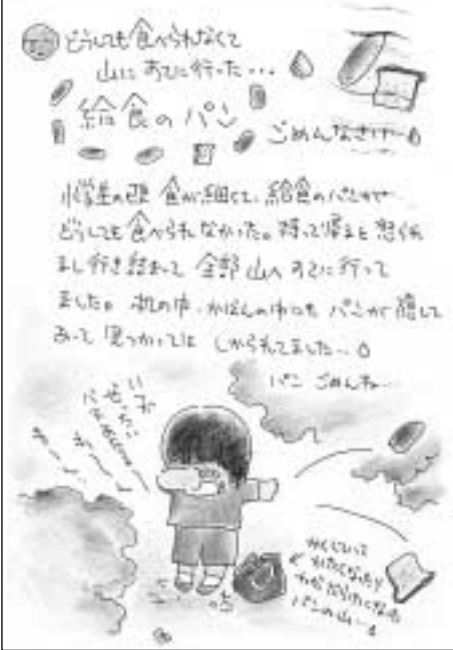 どうしても食べられなくて
山にすてに行った…
給食のパン
ごめんなさいー
小学生の頃 食が細くて、給食のパンが
どうしても食べられなかった。持って帰ると怒られ
るし行き詰まって 全部山へすてに行って
ました。机の中、かばんの中にも パンが隠して
あって 見つかっては しかられてました…
パン ごめんね…
かくしいって
かたくなったり
パンの山…